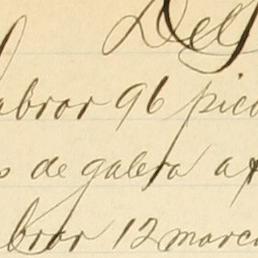 Des
abrar 96 pic
s de galera a
brar 12 marc